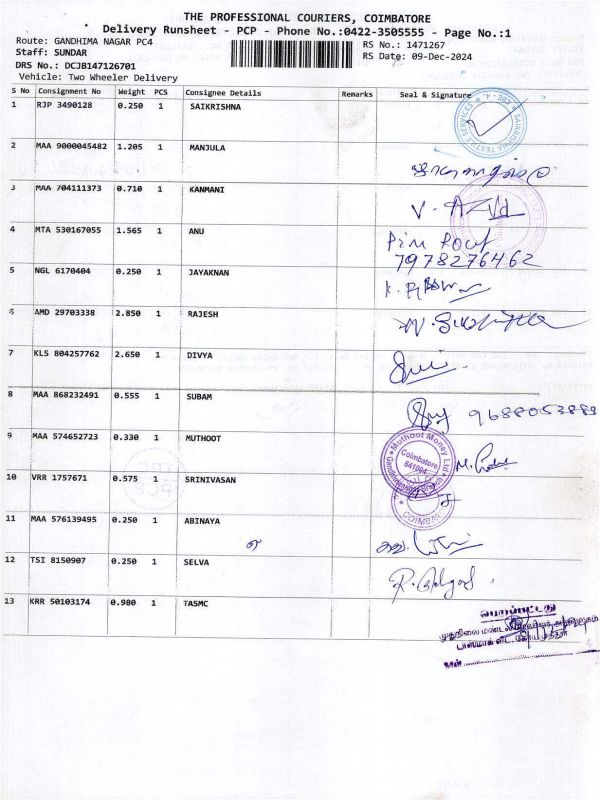 THE PROFESSIONAL COURIERS, COIMBATORE
Delivery Runsheet - PCP - Phone No.:0422-3505555 - Page No.:1
Route: GANDHIMA NAGAR PC4 RS No.: 1471267
Staff: SUNDAR RS Date: 09-Dec-2024
DRS No.: DCJB147126701
Vehicle: Two Wheeler Delivery
S No Consignment No Weight PCS Consignee Details Remarks Seal & Signature
1 RJP 3490128 0.250 1 SAIKRISHNA
2 MAA 9000045482 1.205 1 MANJULA
3 MAA 704111373 0.710 1 KANMANI
4 MTA 530167055 1.565 1 ANU
7978276462
5 NGL 6170404 0.250 1 JAYAKNAN
6 AMD 29703338 2.850 1 RAJESH
7 KLS 804257762 2.650 1 DIVYA
8 MAA 868232491 0.555 1 SUBAM
9688053889
9 MAA 574652723 0.330 1 MUTHOOT
Muthoot Money Ltd
Coimbatore
641004
10 VRR 1757671 0.575 1 SRINIVASAN
COIMBAT
11 MAA 576139495 0.250 1 ABINAYA
12 TSI 8150907 0.250 1 SELVA
13 KRR 50103174 0.980 1 TASMC
பெறப்பட்டது
நாள்